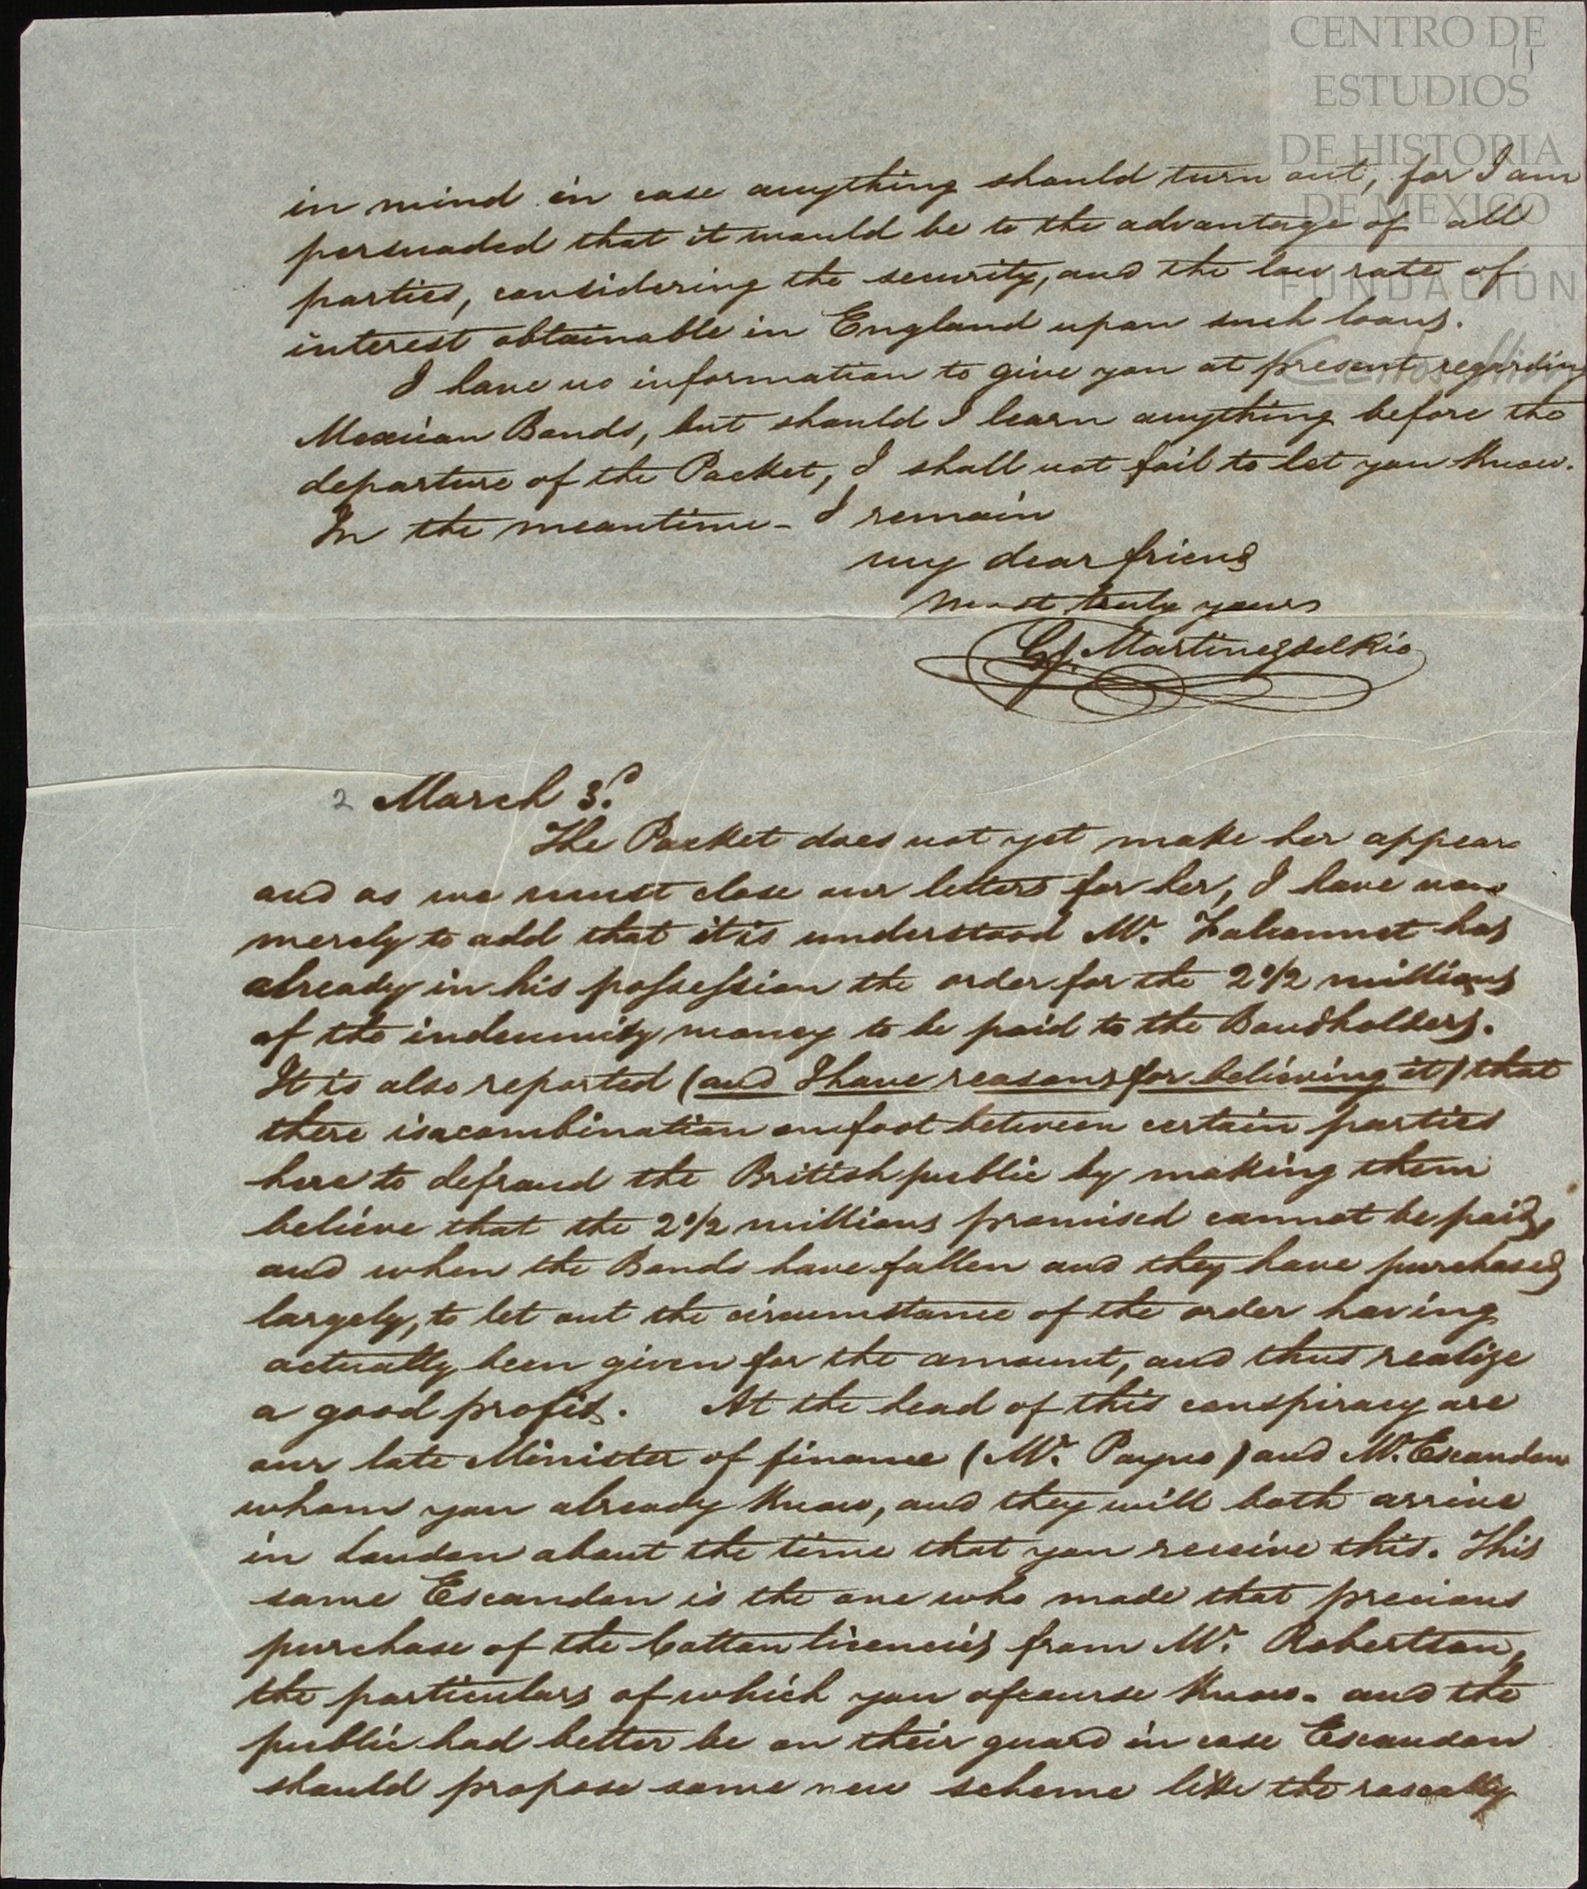 CENTRO DE
ESTUDIOS
DE HISTORIA
DE MEXICO
FUNDACION
11
in mind in case anything should turn out, for I am
persuaded that it would be to the advantage of all
parties, considering the security, and the low rate of
interest obtainable in England upon such loans.
I have no information to give you at present regarding
Mexican Bonds, but should I learn anything before the
departure of the Packet, I shall not fail to let you know.
In the meantime - I remain
my dear friend
most truly yours
G. Martinez del Rio
2 March 3.d
The Packet does not yet make her appear
and as we must close our letters for her, I have now
merely to add that it is understood Mr. Falconnet has
already in his possession the order for the 2 1/2 millions
of the indemnity money to be paid to the Bondholders.
It is also reported (and I have reasons for believing it) that
there is a combination on foot between certain parties
here to defraud the British public by making them
believe that the 2 1/2 millions promised cannot be paid,
and when the Bonds have fallen and they have purchased
largely, to let out the circumstance of the order having
actually been given for the amount, and thus realize
a good profit. At the head of this conspiracy are
our late Minister of finance (Mr. Payno) and Mr. Escandon
whom you already know, and they will both arrive
in London about the time that you receive this. This
same Escandon is the one who made that precious
purchase of the Cotton licencies from Mr. Robertson,
the particulars of which you of course know. and the
public had better be on their guard in case Escandon
should propose some new scheme like the rascally